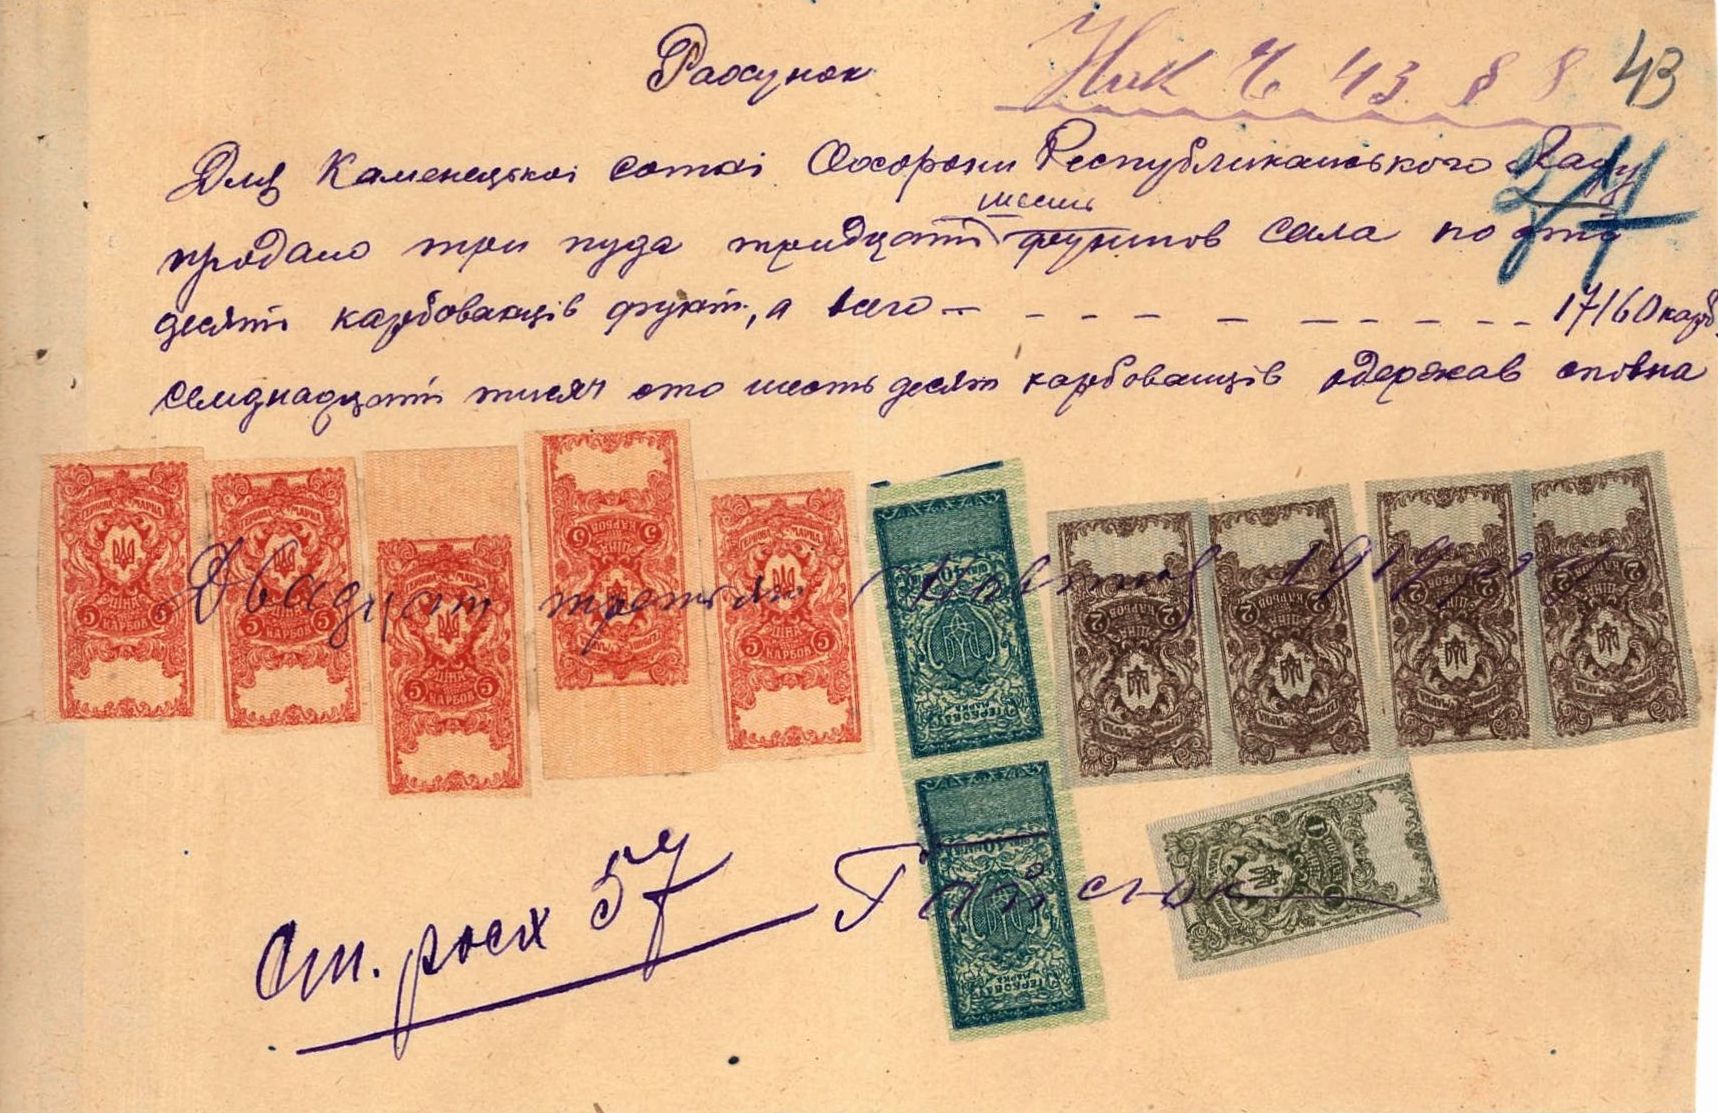 Рахунок
43 § 8 43
Для Каменецькоі сотні Охорони Республиканського Ладу
шесть
продано три пуда тридцать фунтов сала по сто
десять карбованців фунт, а всего — 17160 карб.
семднадцать тисяч сто шесть десят карбованців одержав сповна
ГЕРБОВА МАРКА 5 ЦІНА 5 КАРБОВ
ГЕРБОВА МАРКА 5 ЦІНА 5 КАРБОВ
ГЕРБОВА МАРКА 5 ЦІНА 5 КАРБОВ
ГЕРБОВА МАРКА 5 ЦІНА 5 КАРБОВ
ГЕРБОВА МАРКА 5 ЦІНА 5 КАРБОВ
ГЕРБОВА МАРКА 40
ГЕРБОВА МАРКА 2 ЦІНА 2 КАРБОВ
ГЕРБОВА МАРКА 2 ЦІНА 2 КАРБОВ
ГЕРБОВА МАРКА 2 ЦІНА 2 КАРБОВ
ГЕРБОВА МАРКА 2 ЦІНА 2 КАРБОВ
Двадцать третьяго Жовтня 1919 року
ГЕРБОВА МАРКА 40
ГЕРБОВА МАРКА 1 ЦІНА 1 КАРБОВ
Гайсюк
Ст. росх 57